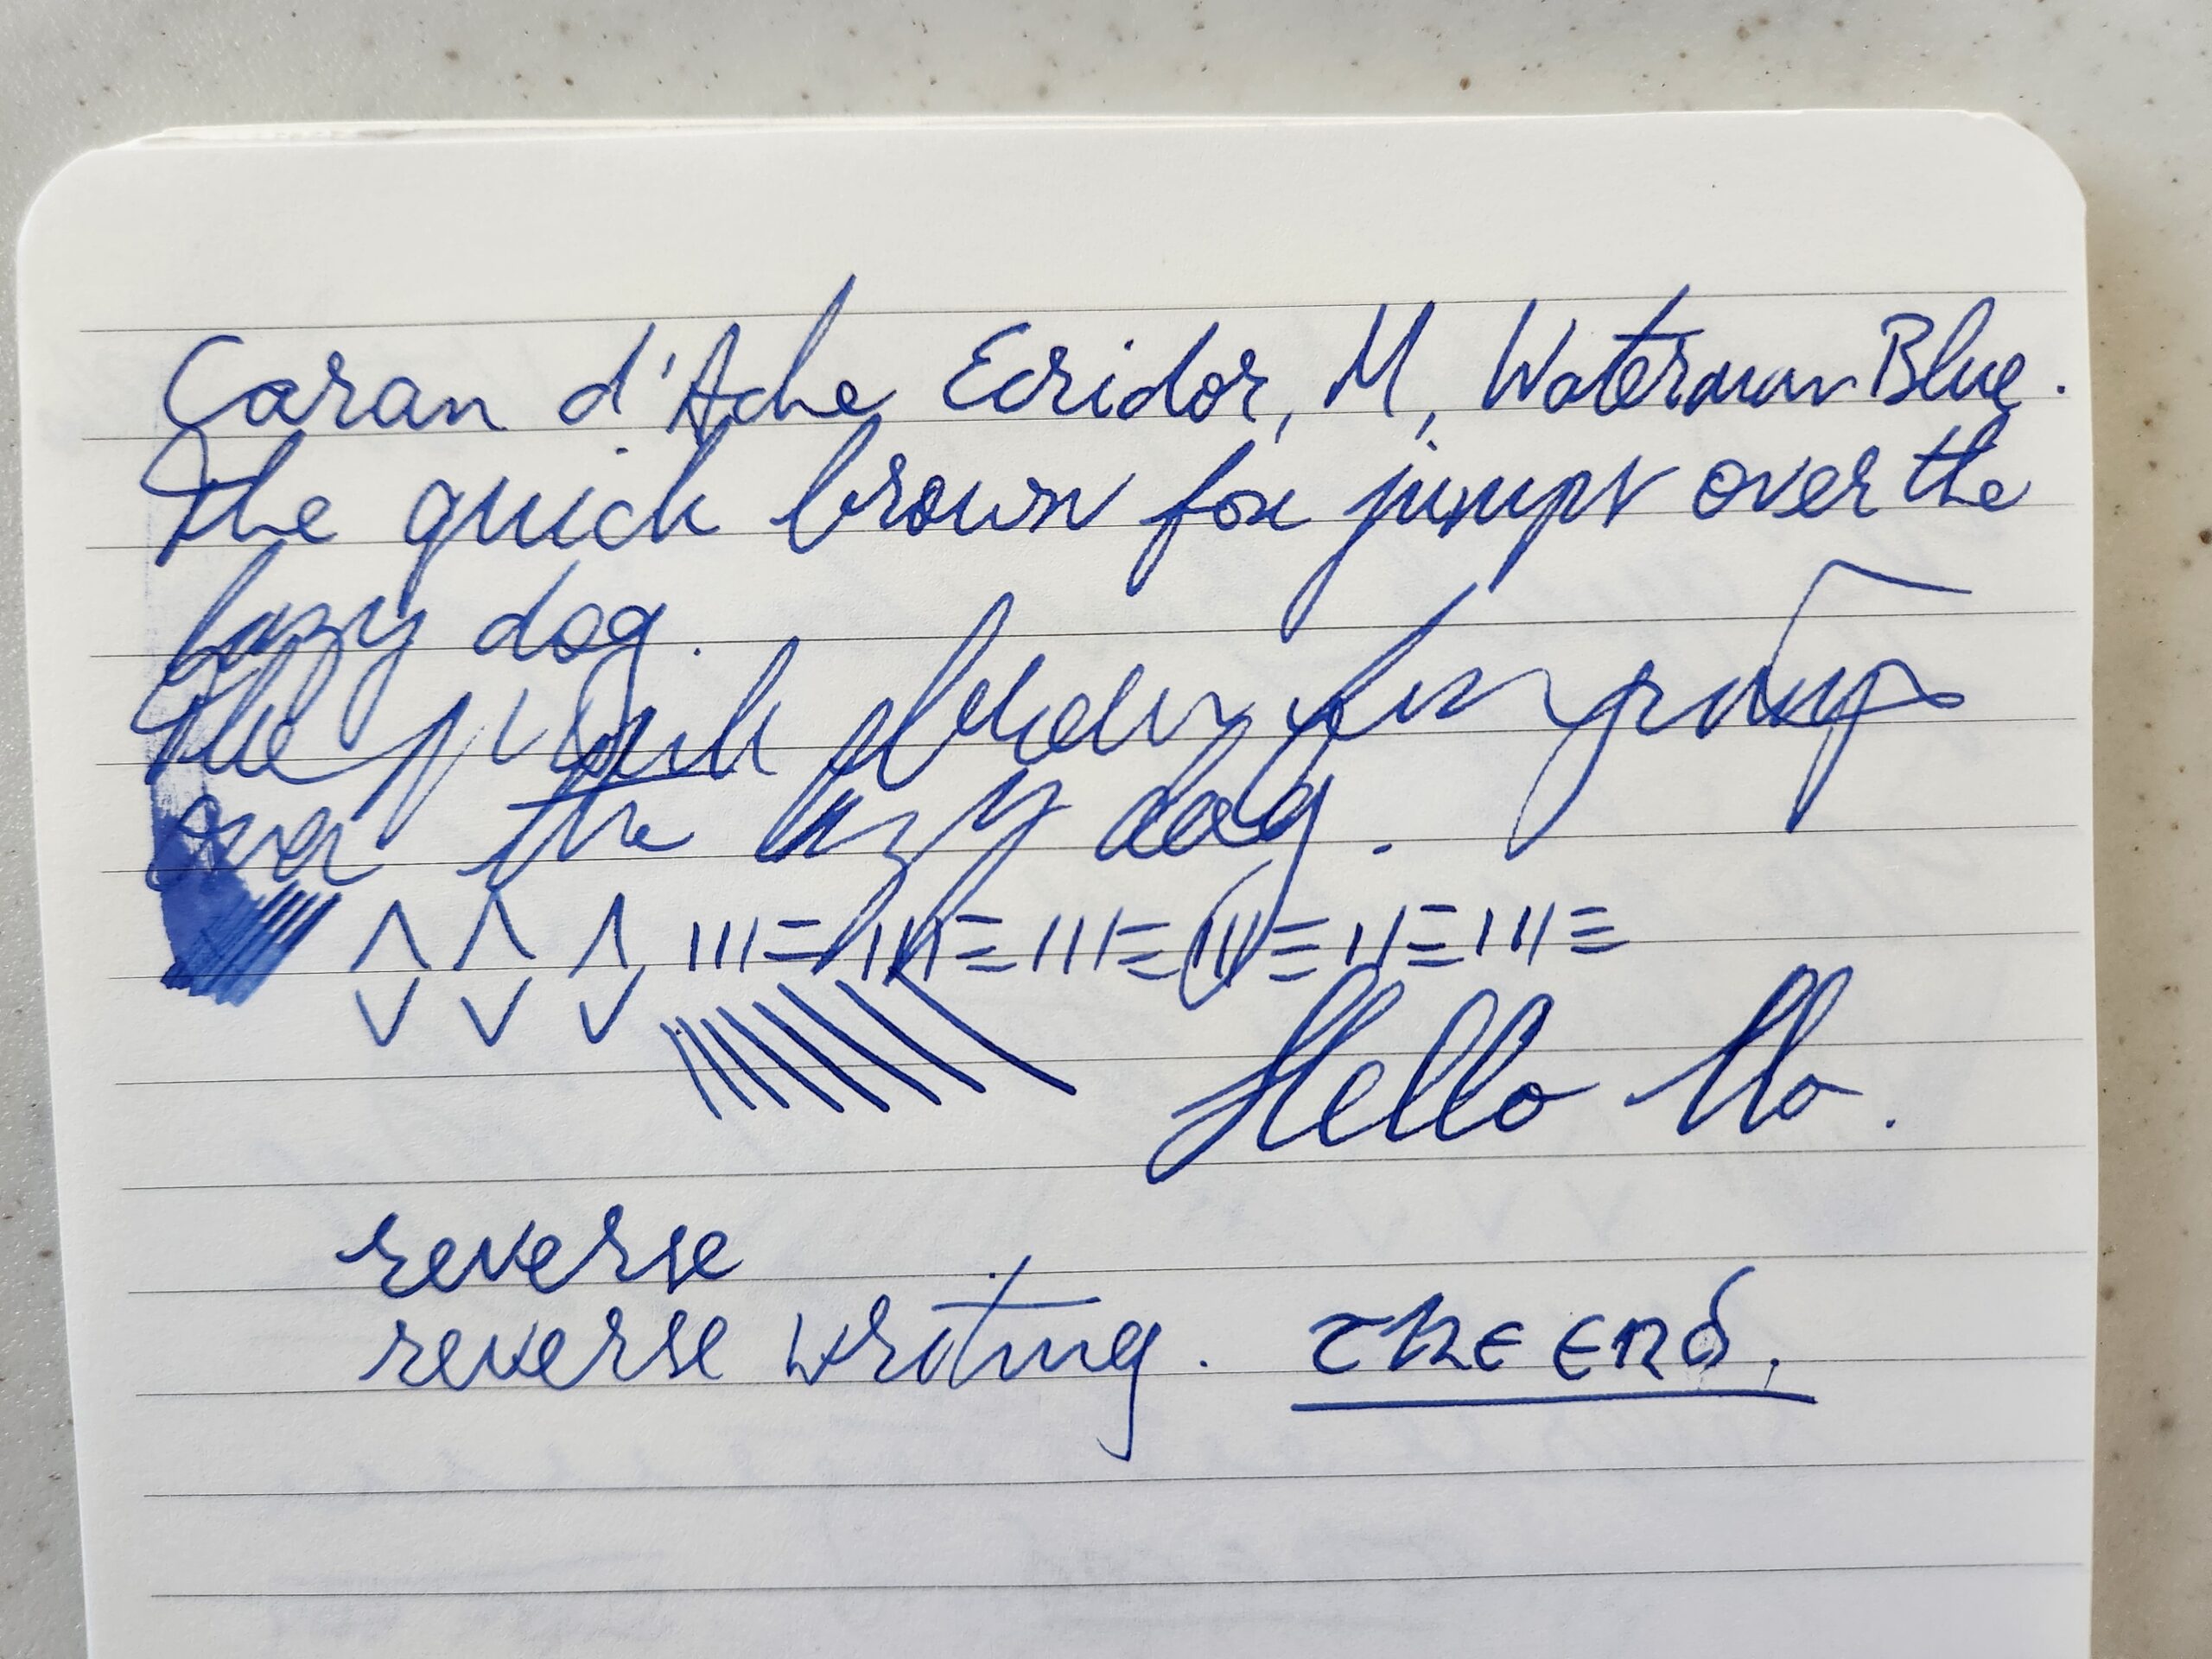 Caran d'Ache Ecridor, M, Waterman Blue.
The quick brown fox jumps over the
lazy dog.
The quick jumps
over the lazy dog.
Hello Mo.
reverse
reverse writing. The End.